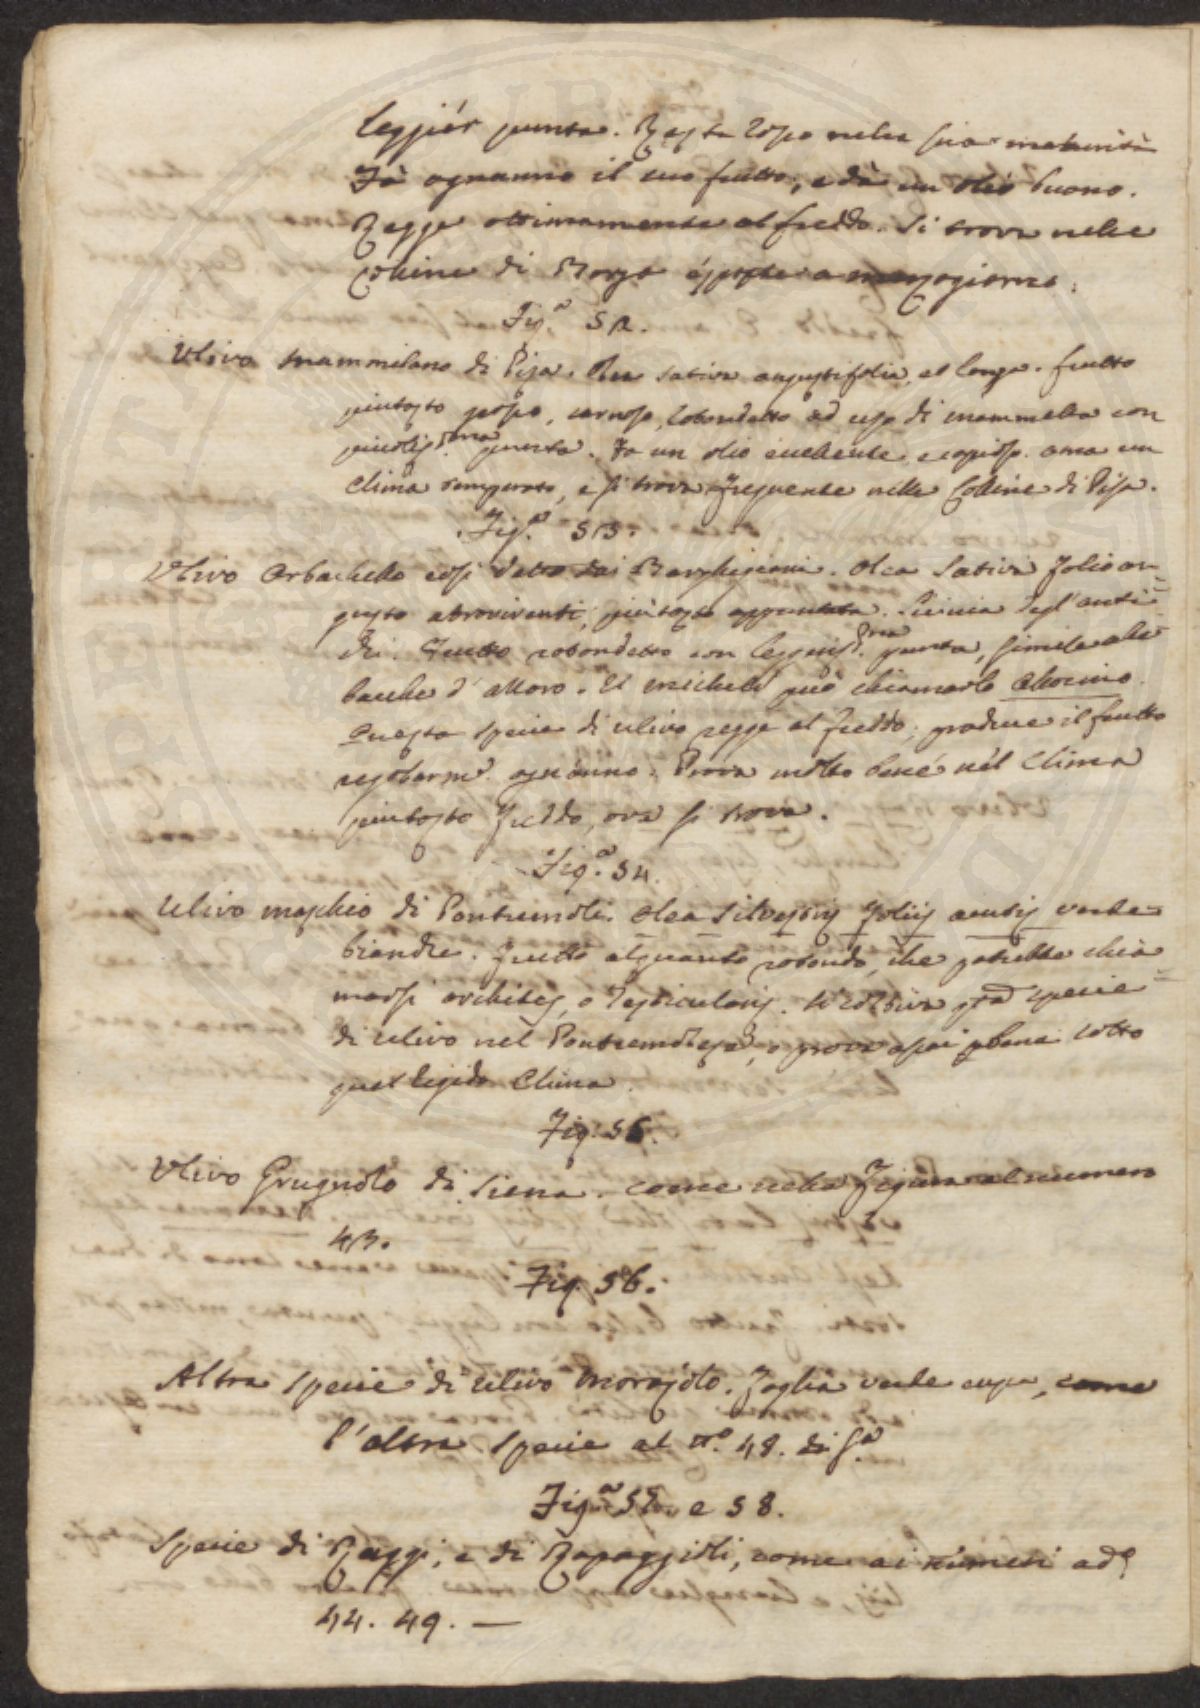 leggier punta. Resta rosso nella sua maturità
Fà ognanno il suo frutto, e dà un olio buono.
Regge ottimamente al freddo. Si trova nelle
Colline di Barga esposte a mezzogiorno.
Fig.ª 52.
Ulivo mammilano di Pisa. Olea sativa angustifolia, et longa. frutto
piutosto grosso, carnoso, rotondetto ad uso di mammella con
piccoliss.ma punta. Fa un olio eccellente, e copioso. ama un
clima temperato, e si trova frequente nelle Colline di Pisa.
Fig.ª 53.
Ulivo Orbachello così detto dai Barghigiani. Olea Sativa folio an-
gusto atroviventi, piutosto appuntata. Scienia degl' anti-
chi. Frutto rotondetto con leggieriss.ma punta, simile alle
bacche d' alloro. Il Micheli può chiamarlo
Questa specie di ulivo regge al freddo; produce il frutto
regolarm.e ogn'anno. Prova molto bene nel Clima
piutosto freddo, ova si trova.
Fig.ª 54.
Ulivo maschio di Pontremoli. Olea Silvestris foliis acutis verde
biandre. frutto alquanto rotondo, che potrebbe chia
marsi orchites, o Testicularis. Si coltiva q.ta specie
di ulivo nel Pontremolese, e prova assai bene sotto
quel tepido Clima.
Fig. 55.
Ulivo Grugnolo di Siena. come nella Figura al numero
43.
Fig. 56.
Altra specie di ulivo Morajolo. Foglia verde cupa, come
l'altra specie al n.º 48. di s.ª
Fig.ª 57. e 58.
Specie di Raggi, e di Rapaggioli, come ai numeri ad.i
44. 49. —